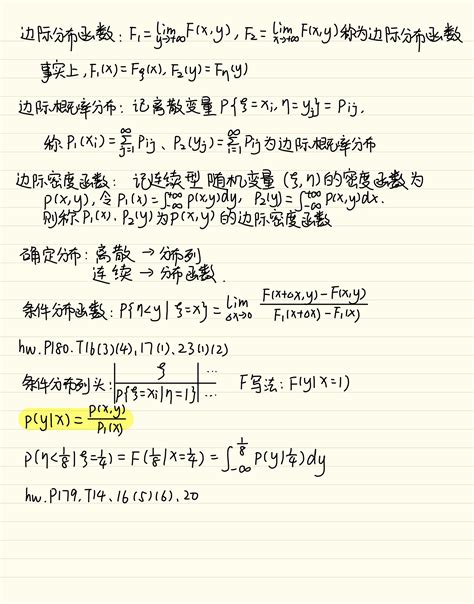 边际分布函数: F₁=lim_{y→+∞}F(x,y), F₂=lim_{x→+∞}F(x,y)称为边际分布函数
事实上, F₁(x)=F_ξ(x), F₂(y)=F_η(y)
边际概率分布: 记离散变量 P{ξ=xᵢ,η=yⱼ}=Pᵢⱼ.
称 P₁(xᵢ)=∑_{j=1}^{∞}Pᵢⱼ、P₂(yⱼ)=∑_{i=1}^{∞}Pᵢⱼ为边际概率分布
边际密度函数: 记连续型随机变量(ξ,η)的密度函数为
p(x,y),令P₁(x)=∫_{-∞}^{+∞}p(x,y)dy, P₂(y)=∫_{-∞}^{+∞}p(x,y)dx.
则称P₁(x).P₂(y)为p(x,y)的边际密度函数
确定分布: 离散→分布列
连续→分布函数.
条件分布函数: P{η<y|ξ=x}=lim_{Δx→0} (F(x+Δx,y)-F(x,y))/(F₁(x+Δx)-F₁(x))
hw.P180.T16(3)(4),17(1).23(1)(2)
条件分布列头: ξ | ...
P{ξ=xᵢ|η=1} | ... F写法: F(y|x=1)
P(y|x)=P(x,y)/P₁(x)
P(η<1/8|ξ=1/4)=F(1/8|x=1/4)=∫_{-∞}^{1/8}P(y|1/4)dy
hw.P179.T14、16(5)(6).20